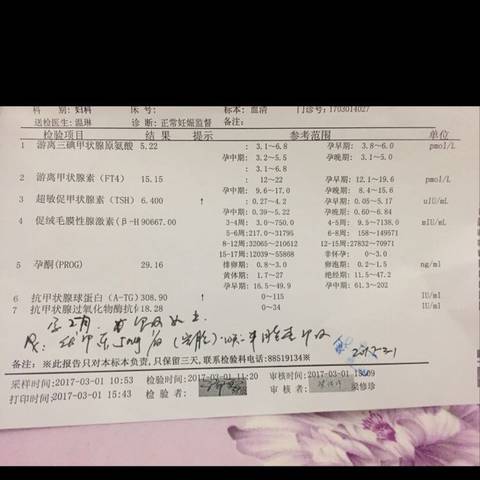 科 别: 妇科 床 号: 标本: 血清 门诊号: 1703014027
送检医生: 温琳 诊 断: 正常妊娠监督 备注:
检验项目 结 果 提示 参考范围 单位
1 游离三碘甲状腺原氨酸 5.22 : 3.1～6.8 孕早期: 3.8～6.0 pmol/L
孕中期: 3.2～5.5 孕晚期: 3.1～5.0
: 3.1～6.8
2 游离甲状腺素 (FT4) 15.15 : 12～22 孕早期: 12.1～19.6 pmol/L
孕中期: 9.6～17.0 孕晚期: 8.4～15.6
3 超敏促甲状腺素 (TSH) 6.400 ↑ : 0.27～4.2 孕早期: 0.05～5.17 uIU/mL
孕中期: 0.39～5.22 孕晚期: 0.60～6.84
4 促绒毛膜性腺激素(β-H 90667.00 3-4周: 3.0～750.0 4-5周: 9.5～7138.0 mIU/mL
5-6周: 217.0～31795 6-7周: 158～149571
8-12周: 32065～210612 12-15周: 27832～70971
15-17周: 12039～55868 非怀孕: 0～3.0
5 孕酮(PROG) 29.16 排卵期: 0.8～3.0 卵泡期: 0.2～1.5 ng/ml
黄体期: 1.7～27 绝经期: 11.5～47.2
孕早期: 16.5～49.9 孕中期: 61.3～202.0
6 抗甲状腺球蛋白 (A-TG) 308.90 ↑ 0～115 IU/ml
7 抗甲状腺过氧化物酶抗体 18.28 0～34 IU/ml
2017-3-1
备注: ※此报告只对本标本负责,只保留三天,联系检验科电话:88519134※
采样时间:2017-03-01 10:53 检验时间:2017-03-01 11:20 审核时间:2017-03-01 15:09
打印时间:2017-03-01 15:43 检 验 者: 审 核 者: 梁修珍